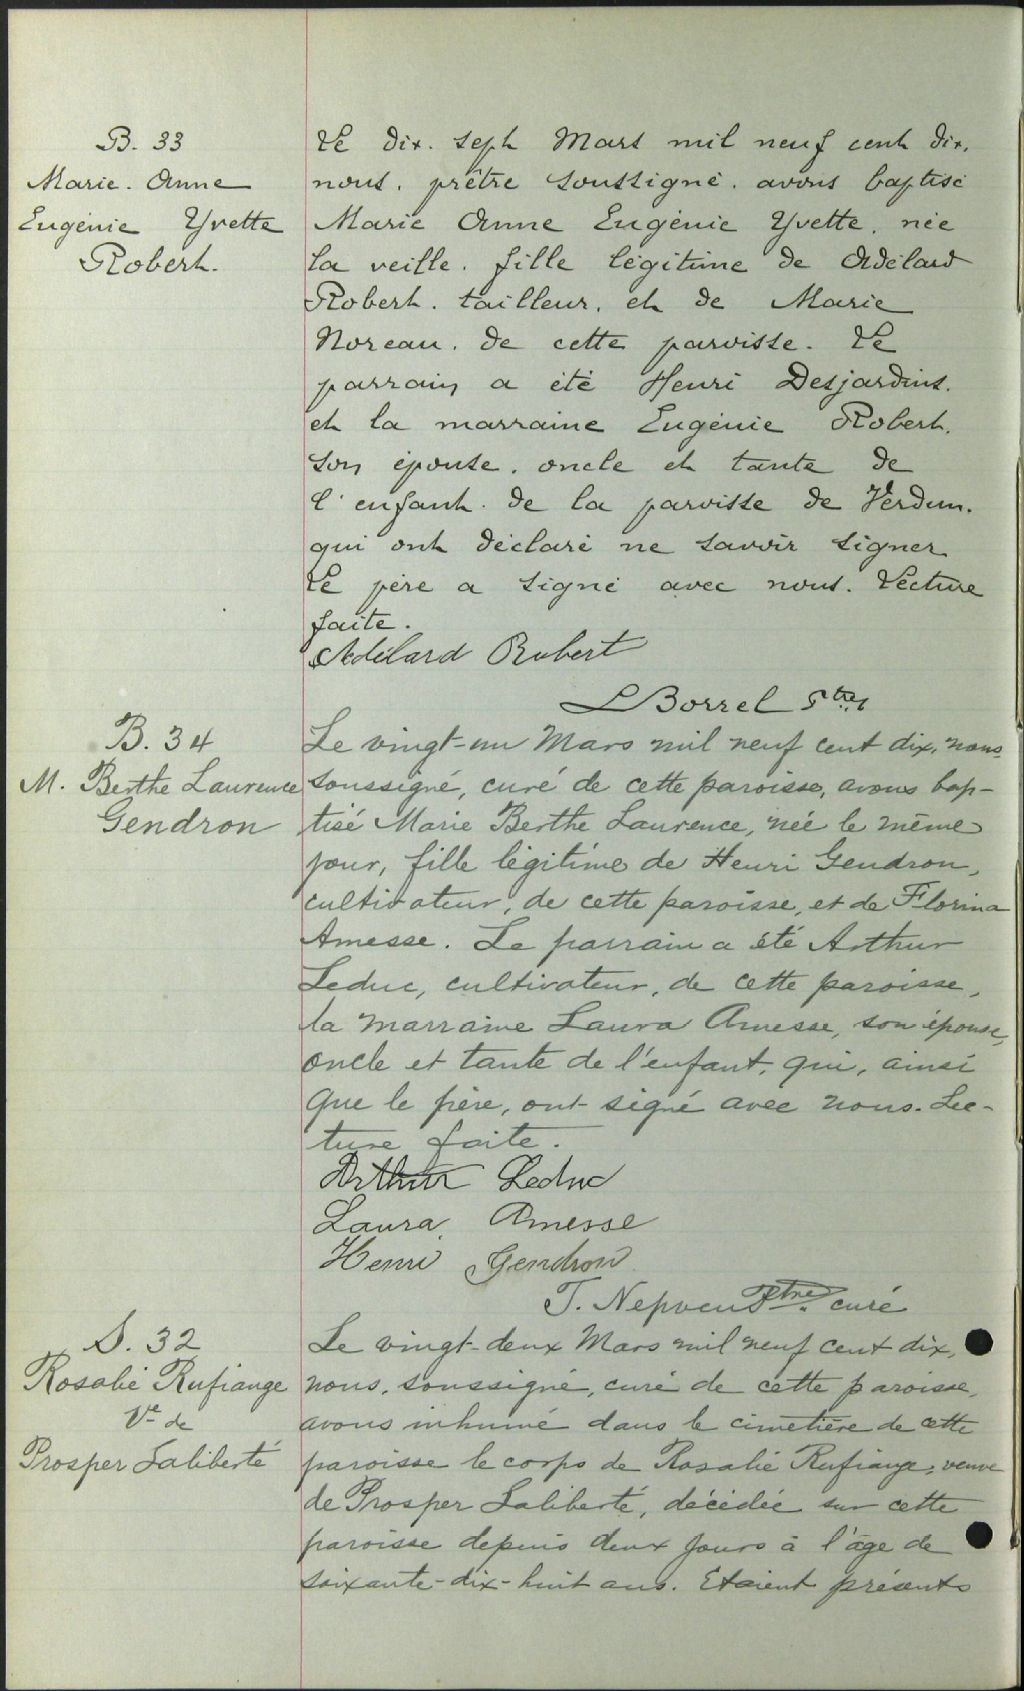 B. 33
Marie. Anne
Eugénie Yvette
Robert.
Le dix. sept Mars mil neuf cent dix.
nous. prêtre soussigné. avons baptisé
Marie Anne Eugénie Yvette. née
la veille. fille légitime de Adélard
Robert. tailleur. et de Marie
Noreau. de cette paroisse. Le
parrain a été Henri Desjardins.
et la marraine Eugénie Robert.
son épouse. oncle et tante de
l'enfant. de la paroisse de Verdun.
qui ont déclaré ne savoir signer
Le père a signé avec nous. Lecture
faite.
Adélard Robert
L Borrel ptre
B. 34
M. Berthe Laurence
Gendron
Le vingt-un Mars mil neuf cent dix, nous
soussigné, curé de cette paroisse, avons bap-
tisé Marie Berthe Laurence, née le même
jour, fille légitime de Henri Gendron,
cultivateur, de cette paroisse, et de Florina
Amesse. Le parrain a été Arthur
Leduc, cultivateur, de cette paroisse,
la marraine Laura Amesse, son épouse,
oncle et tante de l'enfant, qui, ainsi
que le père, ont signé avec nous. Lec-
ture faite.
Arthur Leduc
Laura Amesse
Henri Gendron
T. Nepveu Ptre. curé
S. 32
Rosalie Rufiange
Ve de
Prosper Laliberté
Le vingt-deux Mars mil neuf cent dix,
nous, soussigné, curé de cette paroisse,
avons inhumé dans le cimetière de cette
paroisse le corps de Rosalie Rufiange, veuve
de Prosper Laliberté, décédée sur cette
paroisse depuis deux jours à l'âge de
soixante-dix-huit ans. Etaient présents